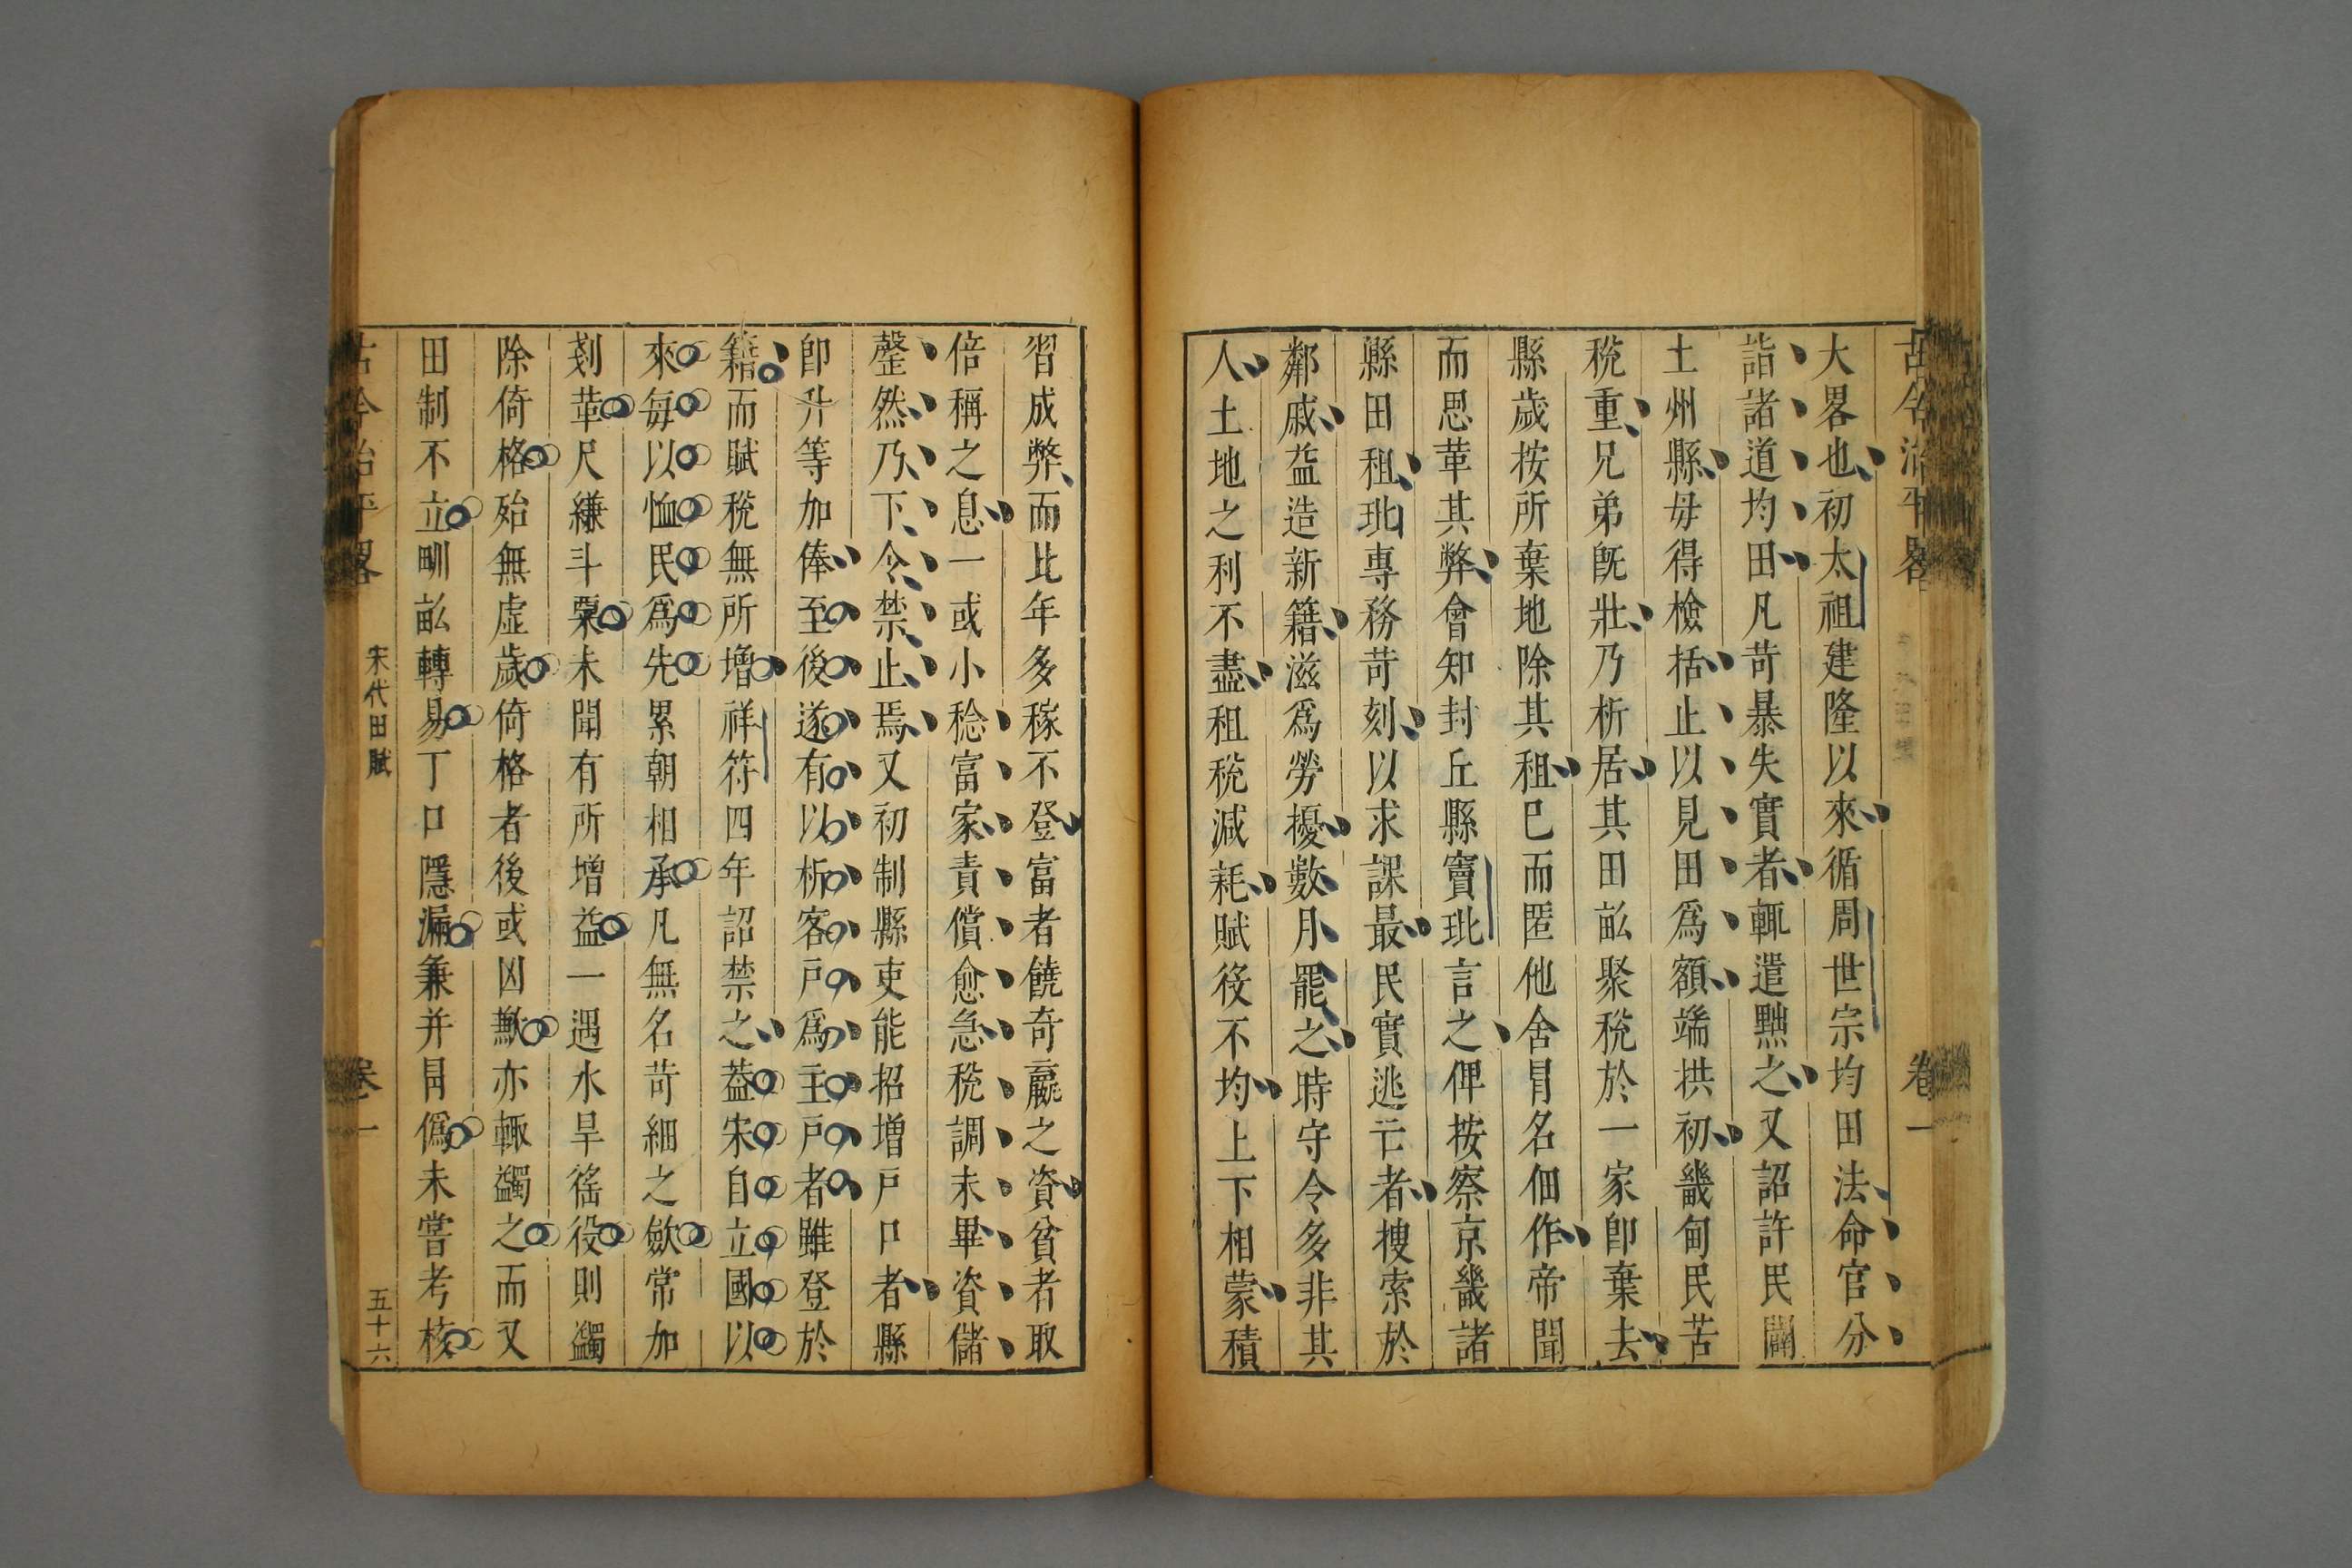 古今治平畧 卷一
大畧也初太祖建隆以來循周世宗均田法命官分
詣諸道均田凡苛暴失實者輒遣黜之又詔許民闢
土州縣毋得檢括止以見田爲額端拱初畿甸民苦
稅重兄弟旣壯乃析居其田畝聚稅於一家卽棄去
縣歲按所棄地除其租已而匿他舍冐名佃作帝聞
而思革其弊會知封丘縣竇玭言之俾按察京畿諸
縣田租玭專務苛刻以求課最民實逃亡者搜索於
鄰戚益造新籍滋爲勞擾數月罷之時守令多非其
人土地之利不盡租稅減耗賦役不均上下相蒙積
習成弊而比年多稼不登富者饒奇羸之資貧者取
倍稱之息一或小稔富家責償愈急稅調未畢資儲
罄然乃下令禁止焉又初制縣吏能招增戸口者縣
卽升等加俸至後遂有以析客戸爲主戸者雖登於
籍而賦稅無所增祥符四年詔禁之葢宋自立國以
來每以恤民爲先累朝相承凡無名苛細之斂常加
剗革尺縑斗粟未聞有所增益一遇水旱徭役則蠲
除倚格殆無虛歲倚格者後或凶歉亦輒蠲之而又
田制不立甽畝轉易丁口隱漏兼并冐僞未嘗考核
古今治平畧 宋代田賦 卷一 五十六